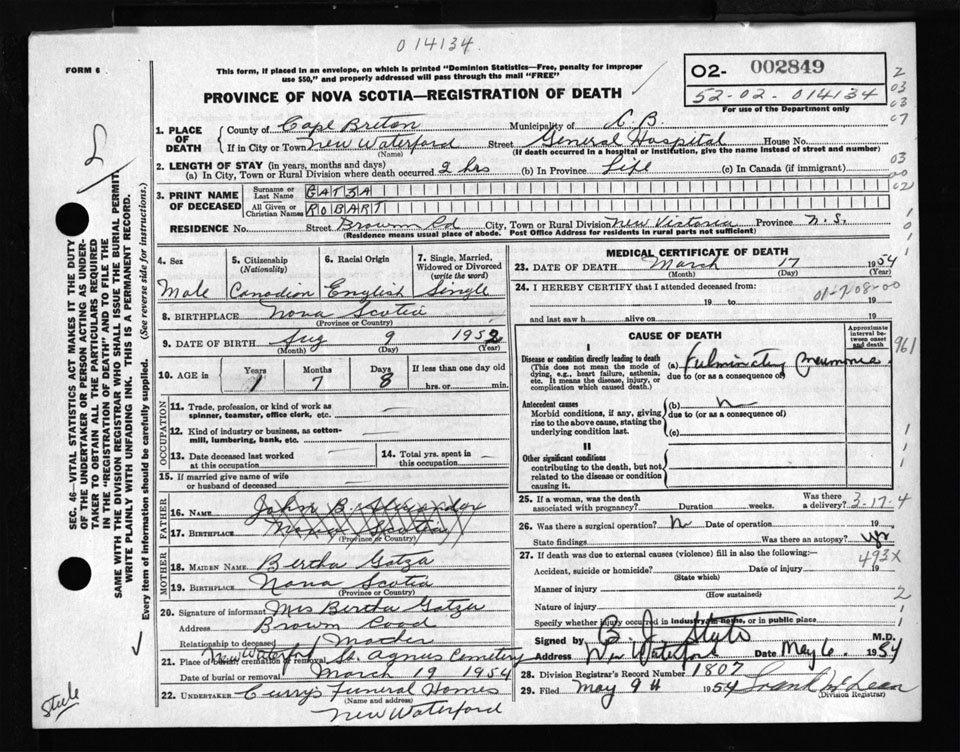 014134
FORM 6
This form, if placed in an envelope, on which is printed "Dominion Statistics—Free, penalty for improper
use $50," and properly addressed will pass through the mail "FREE"
02- 002849
52-02-014134
For use of the Department only
PROVINCE OF NOVA SCOTIA—REGISTRATION OF DEATH
1. PLACE OF DEATH
County of Cape Breton Municipality of C.B.
If in City or Town New Waterford Street General Hospital House No.
(Name) (If death occurred in a hospital or institution, give the name instead of street and number)
2. LENGTH OF STAY (in years, months and days)
(a) In City, Town or Rural Division where death occurred 2 hrs (b) In Province Life (c) In Canada (if immigrant)
3. PRINT NAME OF DECEASED
Surname or Last Name GATZA
All Given or Christian Names ROBART
RESIDENCE No. Street Brown Rd City, Town or Rural Division New Victoria Province N.S.
(Residence means usual place of abode. Post Office Address for residents in rural parts not sufficient)
4. Sex Male
5. Citizenship (Nationality) Canadian
6. Racial Origin English
7. Single, Married, Widowed or Divorced (write the word) Single
8. BIRTHPLACE Nova Scotia
(Province or Country)
9. DATE OF BIRTH Aug 9 1952
(Month) (Day) (Year)
10. AGE in Years 1 Months 7 Days 8 If less than one day old
hrs. or min.
OCCUPATION
11. Trade, profession, or kind of work as spinner, teamster, office clerk, etc. —
12. Kind of industry or business, as cotton-mill, lumbering, bank, etc. —
13. Date deceased last worked at this occupation —
14. Total yrs. spent in this occupation —
15. If married give name of wife or husband of deceased —
FATHER
16. NAME John B. Alexander
17. BIRTHPLACE Nova Scotia
(Province or Country)
MOTHER
18. MAIDEN NAME Bertha Gatza
19. BIRTHPLACE Nova Scotia
(Province or Country)
20. Signature of informant Mrs Bertha Gatza
Address Brown Road
Relationship to deceased Mother
21. Place of burial, cremation or removal New Waterford St. Agnes Cemetery
Date of burial or removal March 19 1954
22. UNDERTAKER Currys Funeral Homes
(Name and address)
New Waterford
MEDICAL CERTIFICATE OF DEATH
23. DATE OF DEATH March 17 1954
(Month) (Day) (Year)
24. I HEREBY CERTIFY that I attended deceased from:
19 to 19
and last saw h alive on 19
CAUSE OF DEATH
Approximate interval between onset and death
I
Disease or condition directly leading to death
(This does not mean the mode of dying, e.g., heart failure, asthenia, etc. It means the disease, injury, or complication which caused death.)
(a) Fulminating Pneumonia
due to (or as a consequence of)
Antecedent causes
Morbid conditions, if any, giving rise to the above cause, stating the underlying condition last.
(b)
due to (or as a consequence of)
(c)
II
Other significant conditions
contributing to the death, but not related to the disease or condition causing it.
25. If a woman, was the death associated with pregnancy? Duration weeks. Was there a delivery? 3-17-4
26. Was there a surgical operation? N Date of operation 19
State findings Was there an autopsy? yes
493X
27. If death was due to external causes (violence) fill in also the following:—
Accident, suicide or homicide? Date of injury 19
(State which)
Manner of injury
(How sustained)
Nature of injury
Specify whether injury occurred in industry, in home, or in public place
Signed by M.D.
Address New Waterford Date May 6. 1954
28. Division Registrar's Record Number 1807
29. Filed May 9th 1954 Frank McLean
(Division Registrar)
SEC. 46—VITAL STATISTICS ACT MAKES IT THE DUTY
OF THE UNDERTAKER OR PERSON ACTING AS UNDER-
TAKER TO OBTAIN ALL THE PARTICULARS REQUIRED
IN THE "REGISTRATION OF DEATH" AND TO FILE THE
SAME WITH THE DIVISION REGISTRAR WHO SHALL ISSUE THE BURIAL PERMIT.
WRITE PLAINLY WITH UNFADING INK. THIS IS A PERMANENT RECORD.
Every item of information should be carefully supplied. (See reverse side for instructions.)
961